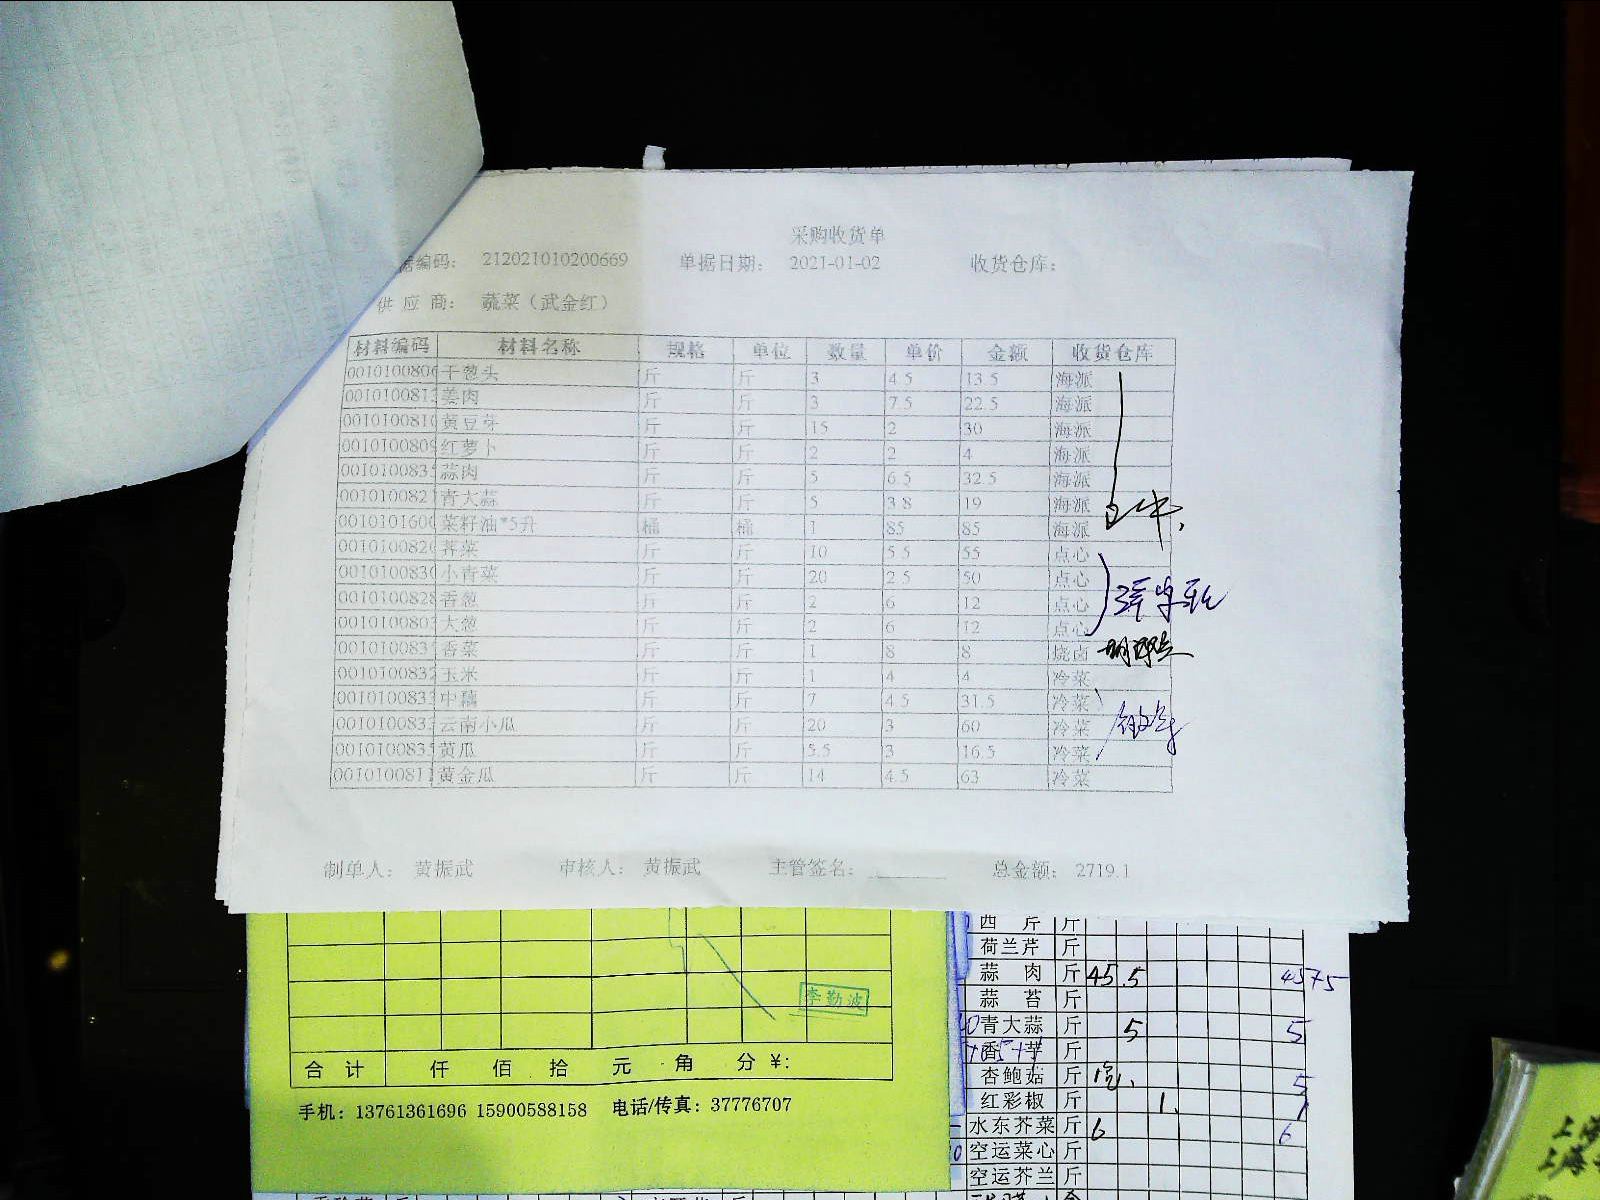 采购收货单
据编码： 212021010200669 单据日期： 2021-01-02 收货仓库：
供应商： 蔬菜（武金红）
材料编码 材料名称 规格 单位 数量 单价 金额 收货仓库
0010100806 干葱头 斤 斤 3 4.5 13.5 海派
001010081 姜肉 斤 斤 3 7.5 22.5 海派
0010100810 黄豆芽 斤 斤 15 2 30 海派
0010100809 红萝卜 斤 斤 2 2 4 海派
001010083 蒜肉 斤 斤 5 6.5 32.5 海派
001010082 青大蒜 斤 斤 5 3.8 19 海派
0010101600 菜籽油*5升 桶 桶 1 85 85 海派
0010100820 荠菜 斤 斤 10 5.5 55 点心
0010100830 小青菜 斤 斤 20 2.5 50 点心
0010100828 香葱 斤 斤 2 6 12 点心
001010080 大葱 斤 斤 2 6 12 点心
001010083 香菜 斤 斤 1 8 8 烧卤
0010100832 玉米 斤 斤 1 4 4 冷菜
001010083 中藕 斤 斤 7 4.5 31.5 冷菜
001010083 云南小瓜 斤 斤 20 3 60 冷菜
001010083 黄瓜 斤 斤 5.5 3 16.5 冷菜
001010081 黄金瓜 斤 斤 14 4.5 63 冷菜
制单人： 黄振武 审核人： 黄振武 主管签名： 总金额： 2719.1
李勤波
合计 仟 佰 拾 元 角 分 ¥:
手机：13761361696 15900588158 电话/传真：37776707
西芹 斤
荷兰芹 斤
蒜肉 斤 45.5
蒜苔 斤
青大蒜 斤 5 5
香芋 斤
杏鲍菇 斤 5
红彩椒 斤 1. 1
水东芥菜 斤 6 6
空运菜心 斤
空运芥兰 斤
上海
上海